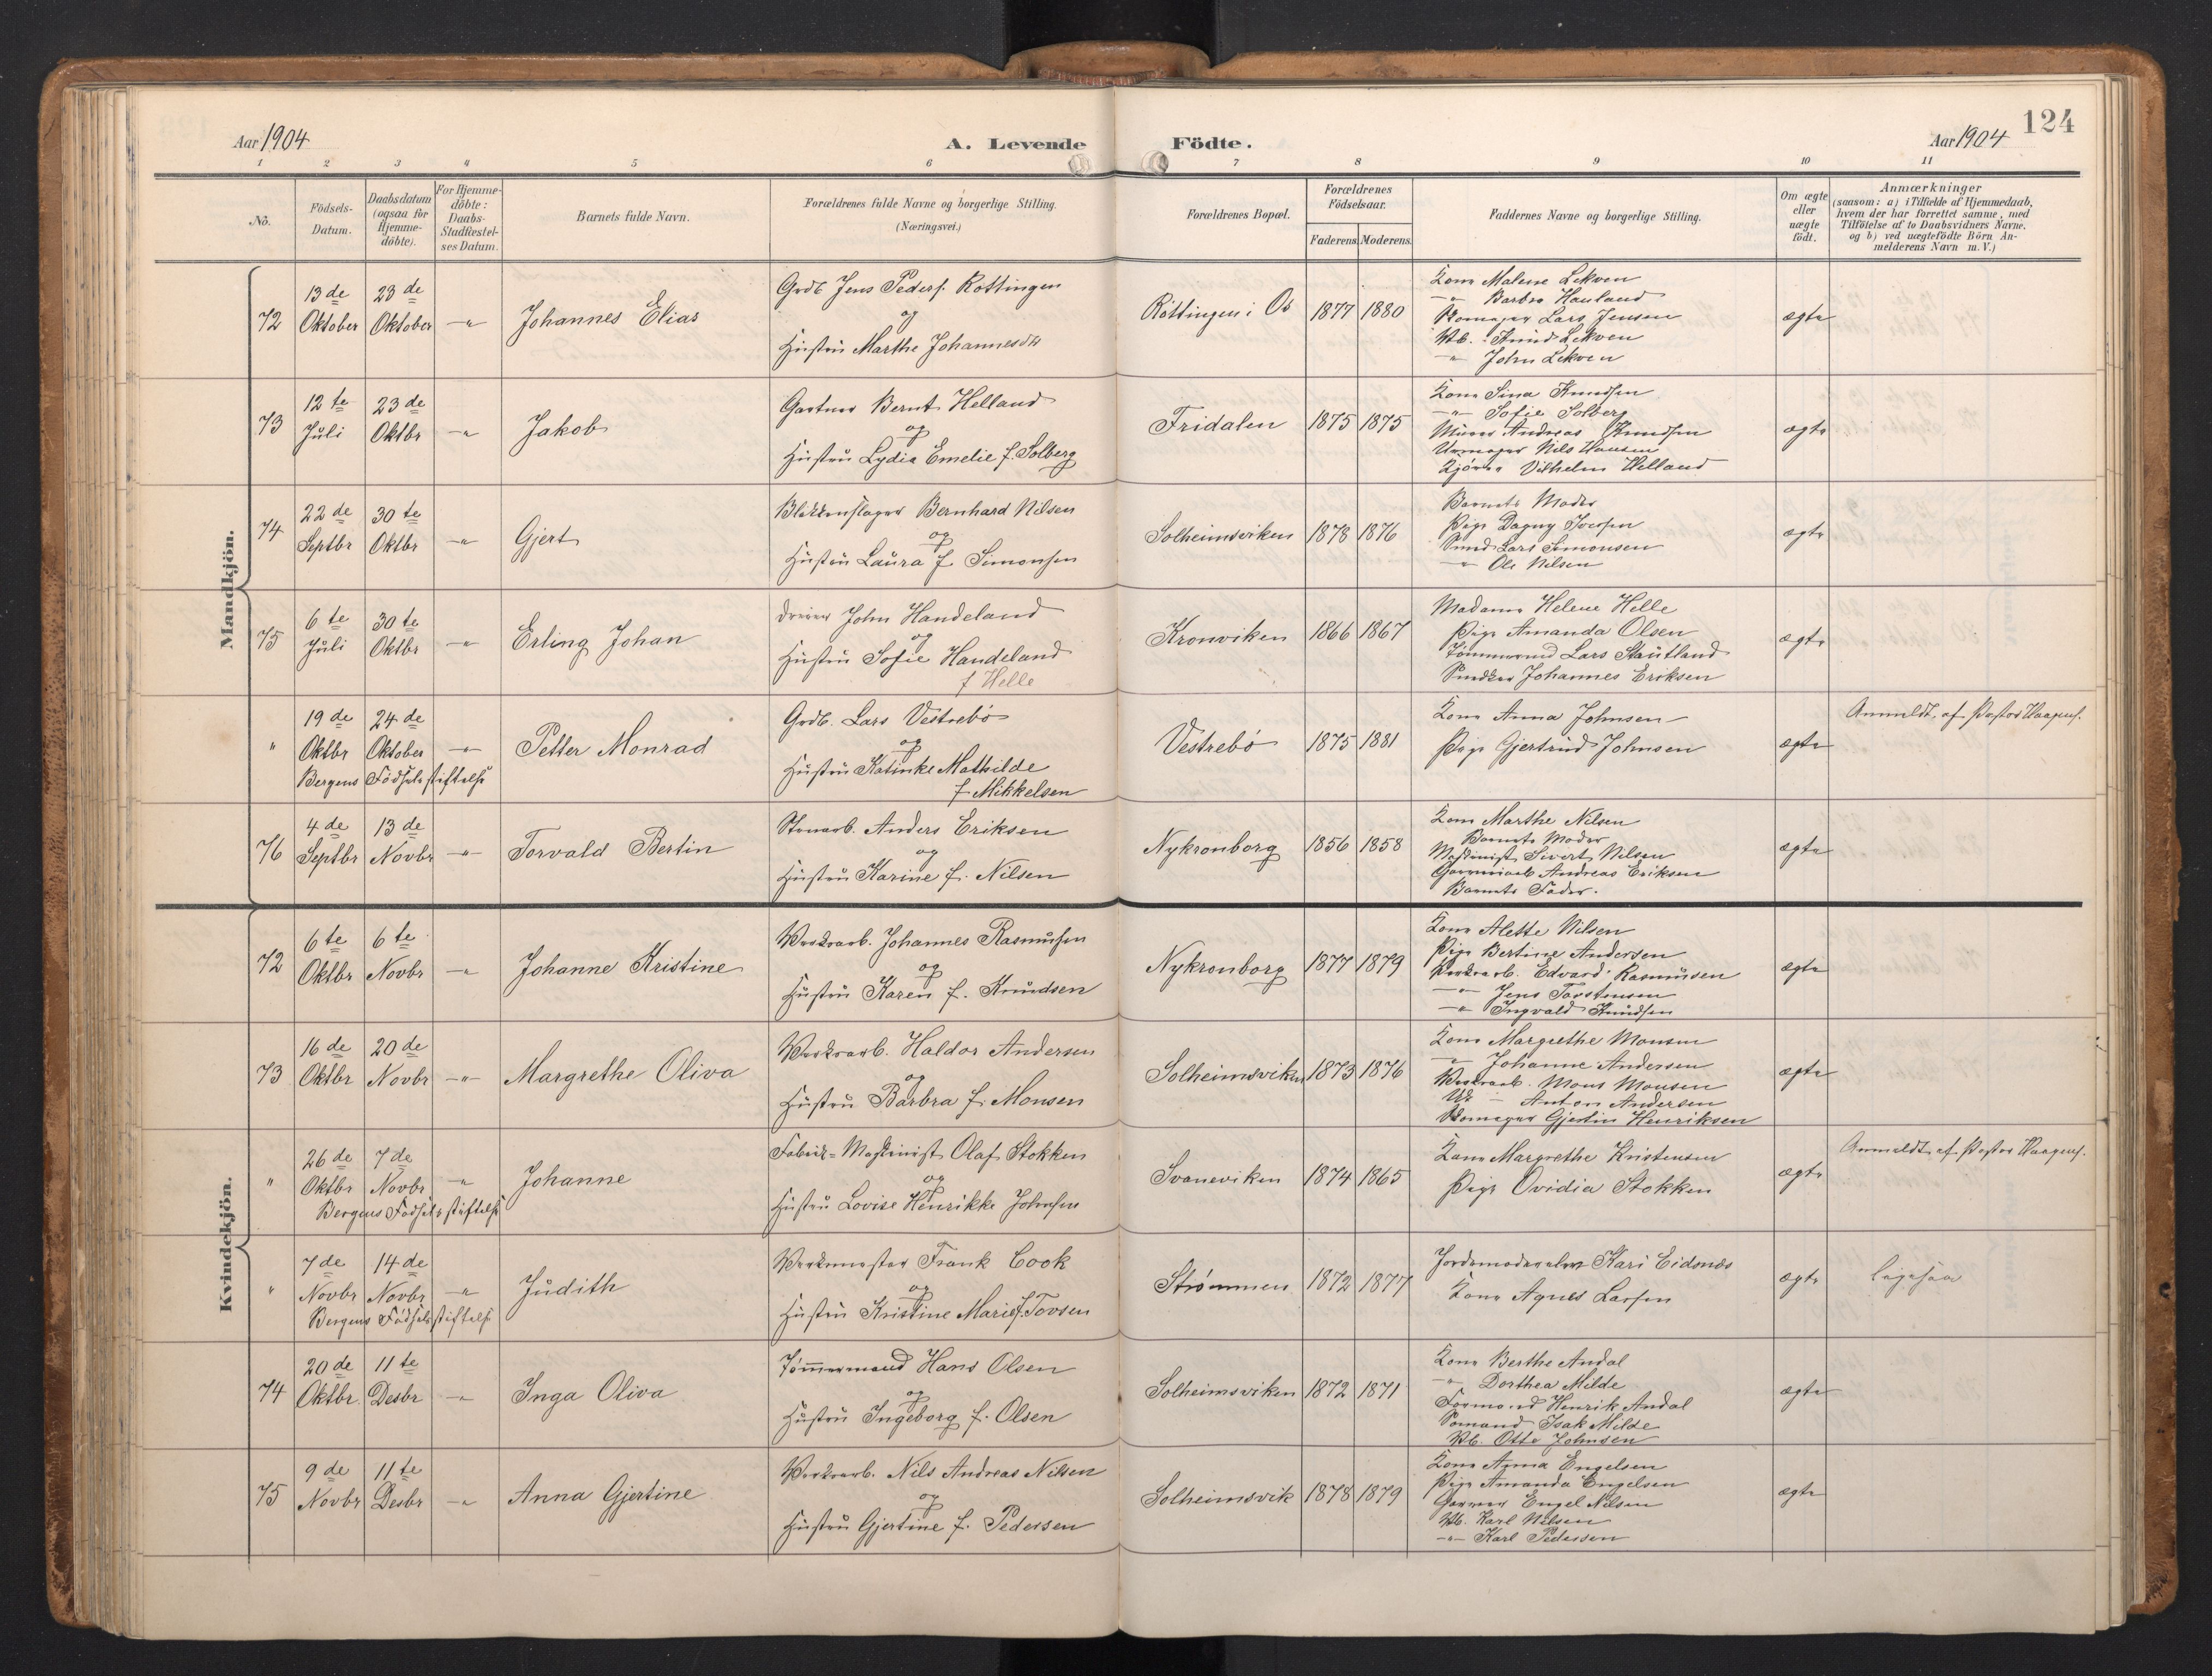 124
Aar 1904
A. Levende Födte.
Aar 1904
1 2 3 4 5 6 7 8 9 10 11
No.
Födsels-Datum.
Daabsdatum (ogsaa for Hjemme-döbte).
For Hjemme-döbte: Daabs-Stadfæstel-ses Datum.
Barnets fulde Navn.
Forældrenes fulde Navne og borgerlige Stilling. (Næringsvei.)
Forældrenes Bopæl.
Forældrenes Födselsaar.
Faderens. Moderens.
Faddernes Navne og borgerlige Stilling.
Om ægte eller uægte födt.
Anmærkninger
(saasom: a) i Tilfælde af Hjemmedaab,
hvem der har forrettet samme, med
Tilföielse af to Daabsvidners Navne.
og b) ved uægtefödte Börn An-
melderens Navn m. V.)
Mandkjön.
72 13de Oktober 23de Oktober -"- Johannes Elias
Grdb Jens Peders. Rottingen
og
Hustru Marthe Johannesdtr
Röttingen i Os 1877 1880
Kone Malene Lekven
-"- Barbra Hauland
Skomager Lars Jensen
Lekven
-"- John Lekven
ægte
73 12te Juli 23de Oktbr -"- Jakob
Gartner Bernt Helland
og
Hustru Lydia Emelie f. Solberg
Fridalen 1875 1875
Kone Sina Knudsen
-"- Sofie Solberg
Murer Andreas Knudsen
Urmager Nils Hansen
Vilhelm Helland
ægte
74 22de Septbr 30te Oktbr -"- Gjert
Blikkenslager Bernhard Nilsen
og
Hustru Laura f. Simonsen
Solheimsviken 1878 1876
Barnets Moder
Pige Dagny Iversen
Smed Lars Simonsen
-"- Ole Nilsen
ægte
75 6te Juli 30te Oktbr -"- Erling Johan
Dreier John Handeland
og
Hustru Sofie Handeland
f Helle
Kronviken 1866 1867
Madame Helene Helle
Pige Amanda Olsen
Tömmermd Lars Stautland
Snedker Johannes Eriksen
ægte
" 19de Oktbr 24de Oktober -"- Petter Monrad
Bergens Födselsstiftelse
Grdb. Lars Vestrebö
og
Hustru Katinke Mathilde
f. Mikkelsen
Vestrebö 1875 1881
Kone Anna Johnsen
Pige Gjertrud Johnsen
ægte
Anmeldt af Pastor
76 4de Septbr 13de Novbr -"- Torvald Bertin
Stenarb. Anders Eriksen
og
Hustru Karine f. Nilsen
Nykronborg 1856 1858
Kone Marthe Nilsen
Barnets Moder
Maskinist Sivert Nilsen
Andreas Eriksen
Barnets Fader.
ægte
Kvindekjön.
72 6te Oktbr 6te Novbr -"- Johanne Kristine
Værksarb. Johannes Rasmusen
og
Hustru Karen f. Knudsen
Nykronborg 1877 1879
Kone Alette Nilsen
Pige Bertine Andersen
Værksarb. Edvard Rasmusen
-"- Jens Torstensen
-"- Ingvald Knudsen
ægte
73 16de Oktbr 20de Novbr -"- Margrethe Oliva
Værksarb. Haldor Andersen
og
Hustru Barbra f. Monsen
Solheimsviken 1873 1876
Kone Margrethe Monsen
-"- Johanne Andersen
Værksarb. Mons Monsen
Anton Andersen
Skomager Gjertin Henriksen
ægte
" 26de Oktbr 7de Novbr -"- Johanne
Bergens Födselsstiftelse
Fabrik-Maskinist Olaf Stokken
og
Hustru Lovise Henrikke Johnsen
Svaneviken 1874 1865
Kone Margrethe Kristensen
Pige Ovidia Stokken
ægte
Anmeldt af Pastor
" 7de Novbr 14de Novbr -"- Judith
Bergens Födselsstiftelse
Værkmester Frank Cook
og
Hustru Kristine Marie f. Tovsen
Strömmen 1872 1877
Jordemoderelev Kari Eidsnæs
Kone Agnes Larsen
ægte
ligesaa
74 20de Oktbr. 11te Desbr -"- Inga Oliva
Tömmermand Hans Olsen
og
Hustru Ingeborg f. Olsen
Solheimsviken 1872 1871
Kone Berthe Andal
-"- Dorthea Milde
Formand Henrik Andal
Sömand Isak Milde
Otto Johnsen
ægte
75 9de Novbr 11te Desbr -"- Anna Gjertine
Værksarb. Nils Andreas Nilsen
og
Hustru Gjertine f. Pedersen
Solheimsvik 1878 1879
Kone Anna Engelsen
Pige Amanda Engelsen
Garver Engel Nilsen
Karl Nilsen
-"- Karl Pedersen
ægte